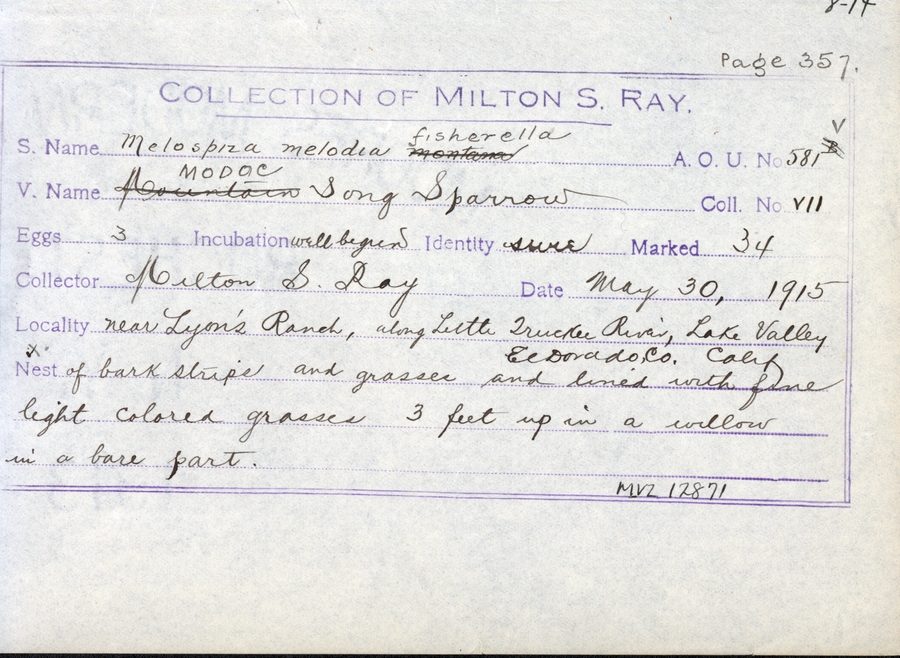 8-14
Page 357.
COLLECTION OF MILTON S. RAY.
fisherella
S. Name Melospiza melodia montana A. O. U. No 581
MODOC
V. Name Mountain Song Sparrow Coll. No VII
Eggs 3 Incubation well begun Identity sure Marked 34
Collector Milton S. Ray Date May 30, 1915
Locality near Lyon's Ranch, along Little Truckee River, Lake Valley
El Dorado, Co. Calif
x
Nest of bark strips and grasses and lined with fine
light colored grasses 3 feet up in a willow
in a bare part.
MVZ 12871